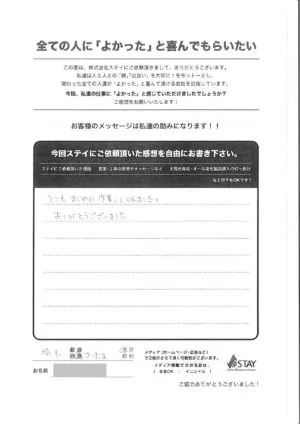 全ての人に「よかった」と喜んでもらいたい
この度は、株式会社ステイにご依頼頂きまして、ありがとうございます。
私達は人と人との「絆」「出会い」を大切に！をモットーとし、
関わった全ての人達が「よかった」と喜んで頂ける会社を目指しています。
今回、私達の仕事に「よかった」と感じていただけましたでしょうか？
ご感想をお願いいたします！
お客様のメッセージは私達の励みになります！！
今回ステイにご依頼頂いた感想を自由にお書き下さい。
ステイにご依頼頂いた理由　営業・工事の感想やメッセージなど　太陽光発電・オール電化製品購入の切っ掛け
など何でもOKです！
とても まじめに 作業してくれました。
ありがとうございました
埼玉 都道府県 さいたま 市区町村
お名前
メディア（ホームページ・広告など）
でご紹介させて頂く可能性がございます。
メディア掲載でのお名前は、
（ 名前OK ・ イニシャル ）
STAY
ご協力ありがとうございました！